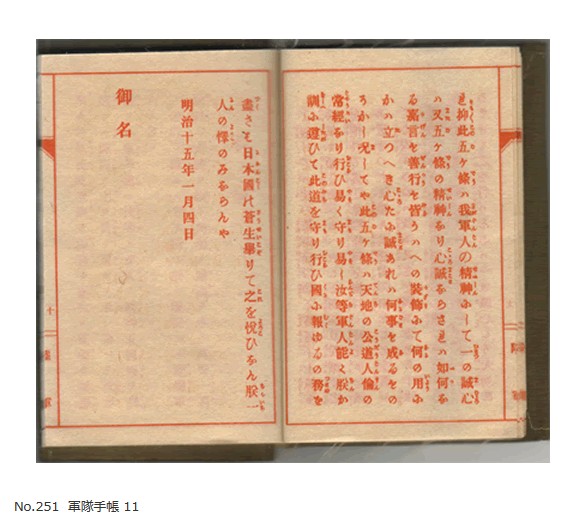 れ抑此五ヶ條ハ我軍人の精神にして一の誠心
ハ又五ヶ條の精神なり心誠ならされハ如何な
る嘉言も善行も皆うハへの装飾にて何の用に
かハ立つへき心たに誠あれハ何事も成るもの
そかし况してや此五ヶ條ハ天地の公道人倫の
常經なり行ひ易く守り易し汝等軍人能く朕か
訓に遵ひて此道を守り行ひ國に報ゆるの務を
盡さハ日本國の蒼生擧りて之を悅ひなん朕一
人の懌のみならんや
明治十五年一月四日
御名
No.251 軍隊手帳 11